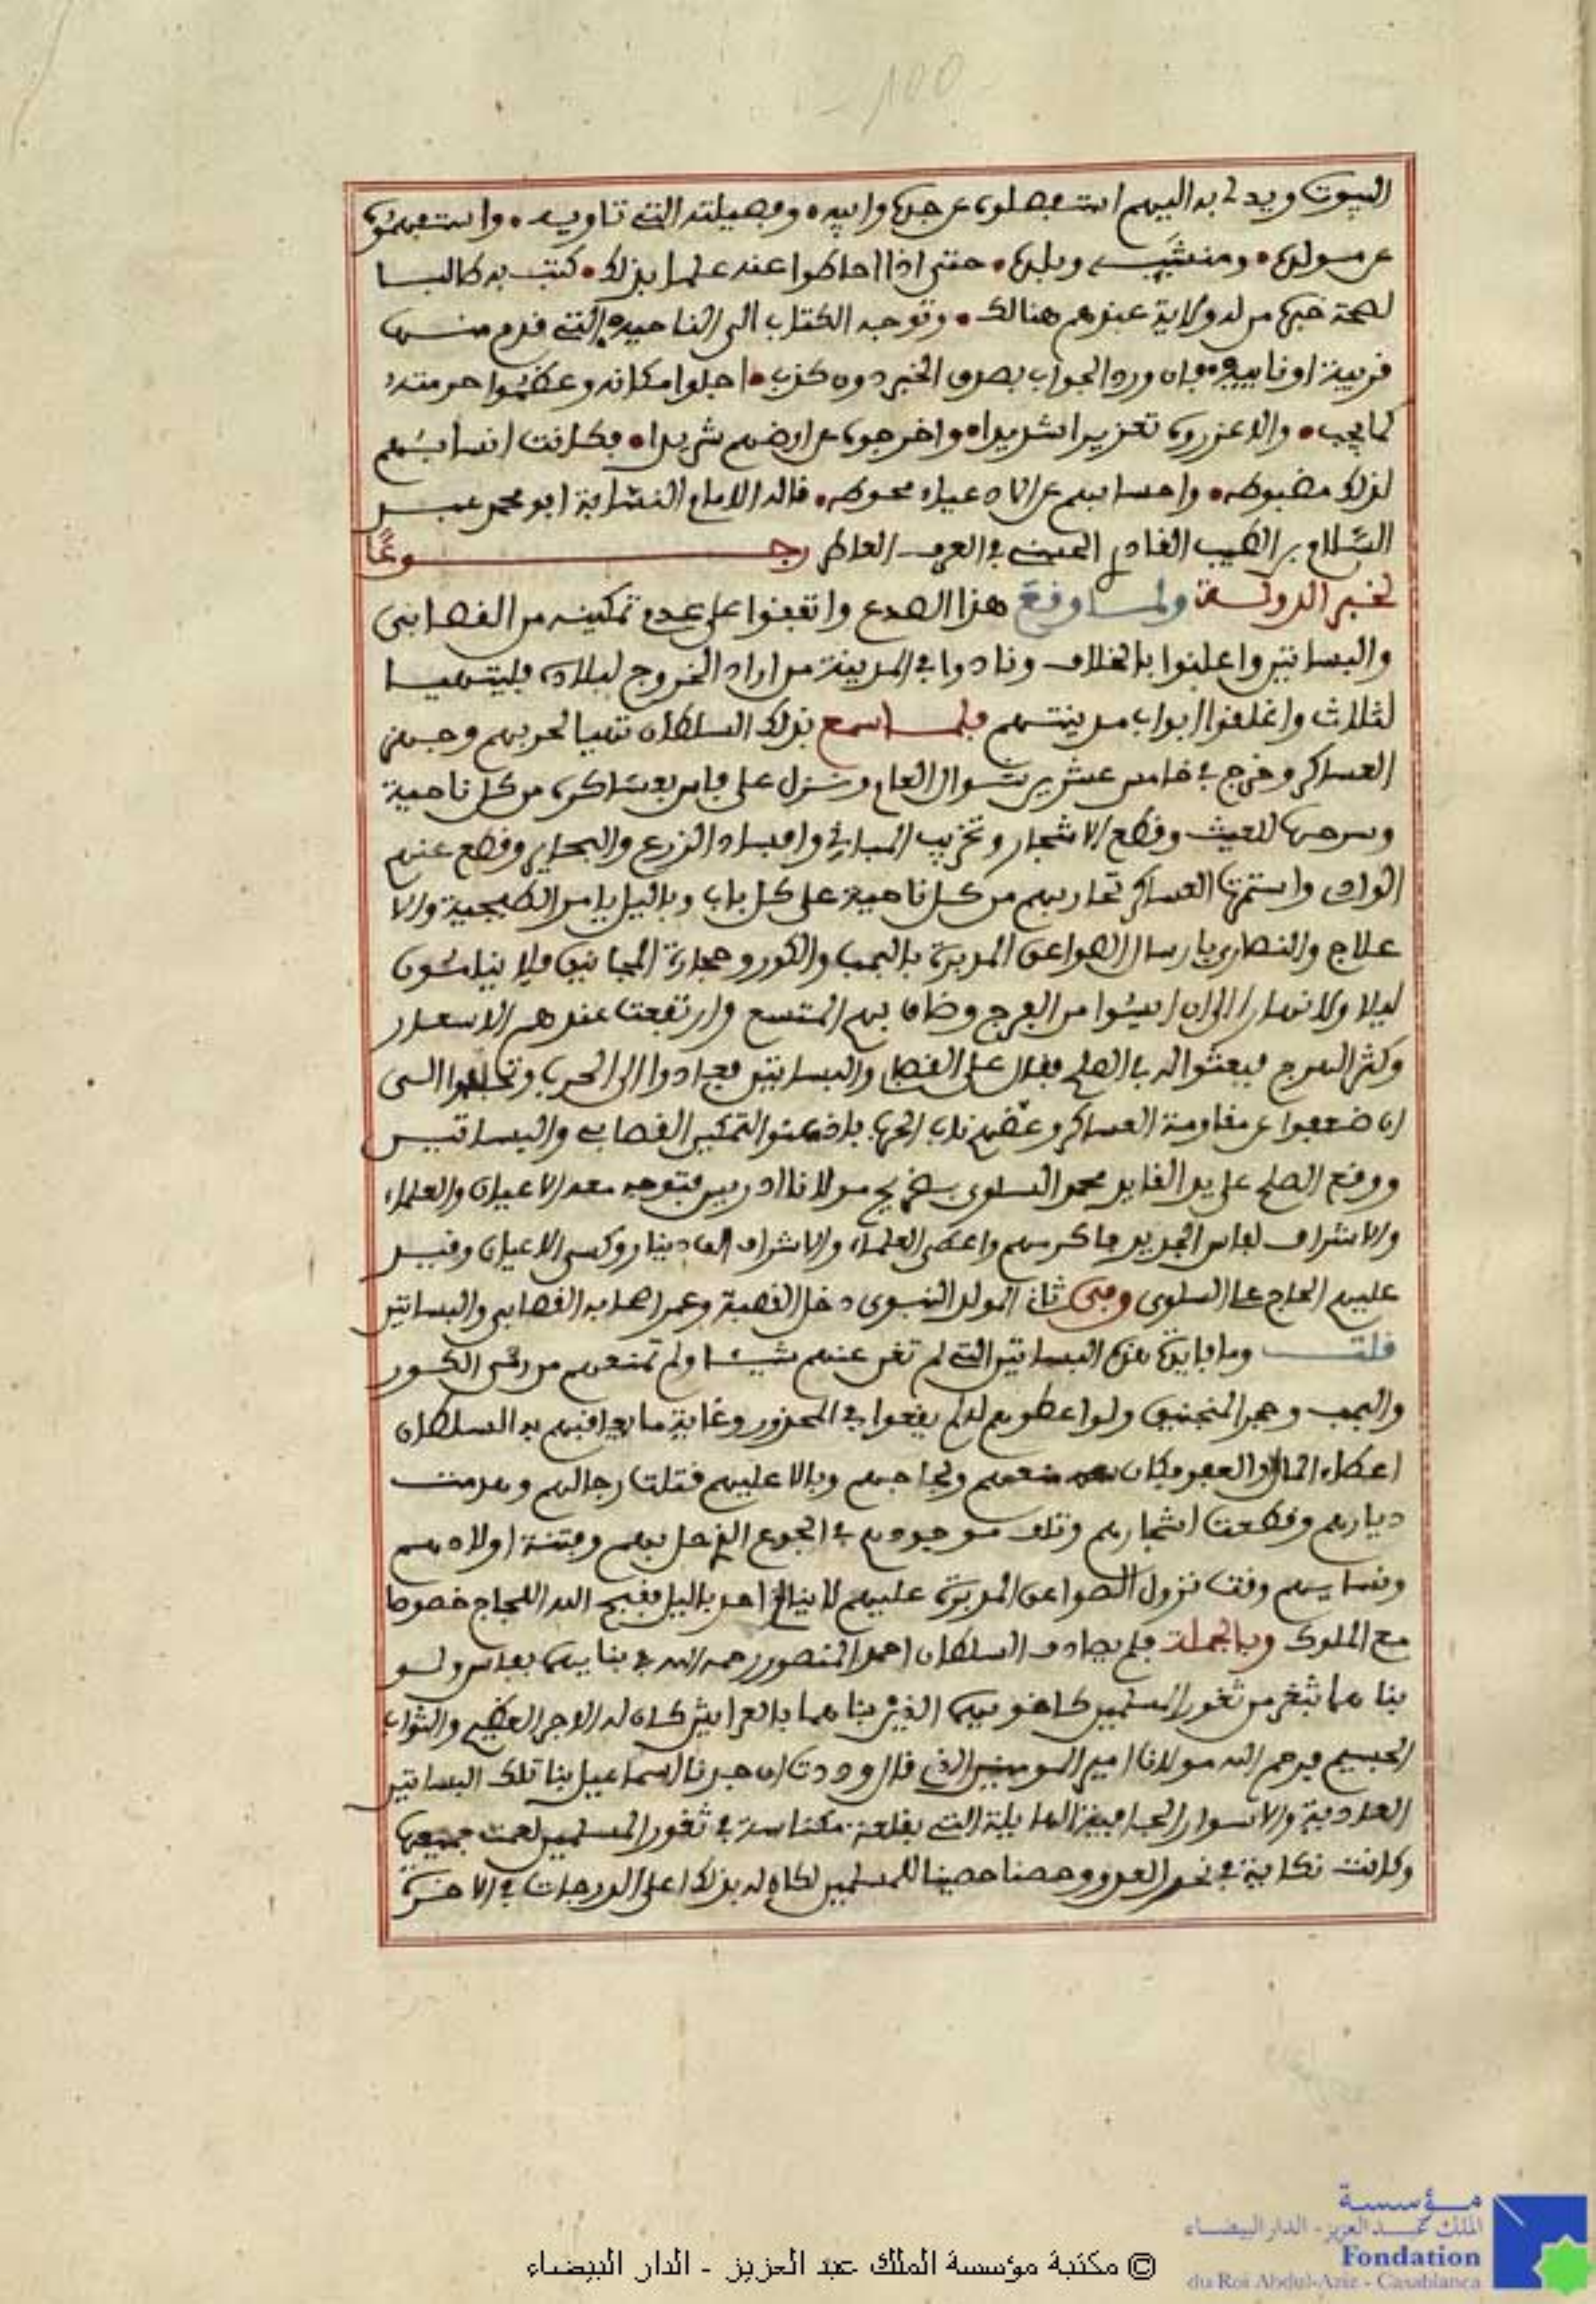 البيوت ويدلى به اليهم استفصلوه عن جده وابيه وفصيلته التي تاويه واستفهموه
عن مولده ومنشئه وبلده حتى اذا احاطوا عنده علما بذلك كتب به طالبا
لصحة خبره من له ولاية عندهم هنالك وتوجه الكتاب الى الناحية التي قدم منها
قريبة او نايية فان ورد الجواب بصدق الخبر دون كذب اجلوا مكانه وعظموا حرمته
كما يجب والا عزروه تعزيرا شديدا واخرجوه من ارضهم شريدا فكانت انسابهم
لذلك مضبوطه واحسابهم عن الادعياء محوطه قاله الامام النسابة ابو محمد عبد
السلام بن الطيب القادري الحسني في العرف العاطر رجوعا
لخبر الدولة ولما وقع هذا الصدع واتفقوا على عدم تمكينه من القصابي
والبساتين واعلنوا بالخلاف ونادوا في المدينة من اراد الخروج لبلاده فليتهيا
لثلاث واغلقوا ابواب مدينتهم فلما سمع بذلك السلطان تهيا لحربهم وجهز
العساكر وخرج في خامس عشرين شوال العام ونزل على فاس بعساكره من كل ناحية
وسرحها للعيث وقطع الاشجار وتخريب المباني وافساد الزرع والبحاير وقطع عنهم
الواد واستمرت العساكر تحاربهم من كل ناحية على كل باب وبالليل يامر الطبجية والا
علاج والنصارى بارسال الصواعق المدبرة بالبمب والكور وحجارة المجانيق فلا ينامون
ليلا ولا نهارا الى ان ايسوا من الفرج وضاق بهم المتسع وارتفعت عندهم الاسعار
وكثر الهرج فبعثوا له بالصلح فقال على القصابي والبساتين فعادوا الى الحرب الى
ان ضعفوا عن مقاومة العساكر وعضهم ناب الحرب فاذعنوا لتمكين القصابي والبساتين
ووقع الصلح على يد القايد محمد السلوي بضريح مولانا ادريس فتوجه معه الاعيان والعلماء
والاشراف لفاس الجديد فاكرمهم واعطى العلماء والاشراف الف دينار وكسى الاعيان وقيد
عليهم الحاج على السلوى وفى ثاني المولد النبوى دخل القصبة وعمر اصحابه القصابي والبساتين
قلت وما فايدة هذه البساتين التي لم تغن عنهم شيئا ولم تمنعهم من رمي الكور
والبمب وحجر المنجنيق ولو اعطوهم له لم يقعوا في المحذور وغاية ما يعاقبهم به السلطان
اعطاء المال والعفو فكان منعهم ولجاجهم وبالا عليهم قتلت رجالهم وهدمت
ديارهم وقطعت اشجارهم وتلف موجودهم في الجوع الذي حل بهم وفتنة اولادهم
ونسايهم وقت نزول الصواعق المدبرة عليهم لا ينام احد بالليل فقبح الله اللجاج خصوصا
مع الملوك وبالجملة فلم يصادف السلطان احمد المنصور رحمه الله في بنايهما بفاس ولو
بناهما بثغر من ثغور المسلمين كاخويهما الذين بناهما بالعرايش كان له الاجر العظيم والثواب
الجسيم فرحم الله مولانا امير المومنين الذي قال وددت ان جدنا اسماعيل بنا تلك البساتين
العادية والاسوار الهايلة التي بقلعة مكناسة في ثغور المسلمين لعمت جميعها
وكانت نكاية في نحر العدو وحصنا حصينا للمسلمين لكان له بذلك اعلى الدرجات في الاخرة
مؤسسة
الملك عبد العزيز - الدار البيضاء
Fondation
du Roi Abdul-Aziz - Casablanca
© مكتبة مؤسسة الملك عبد العزيز - الدار البيضاء